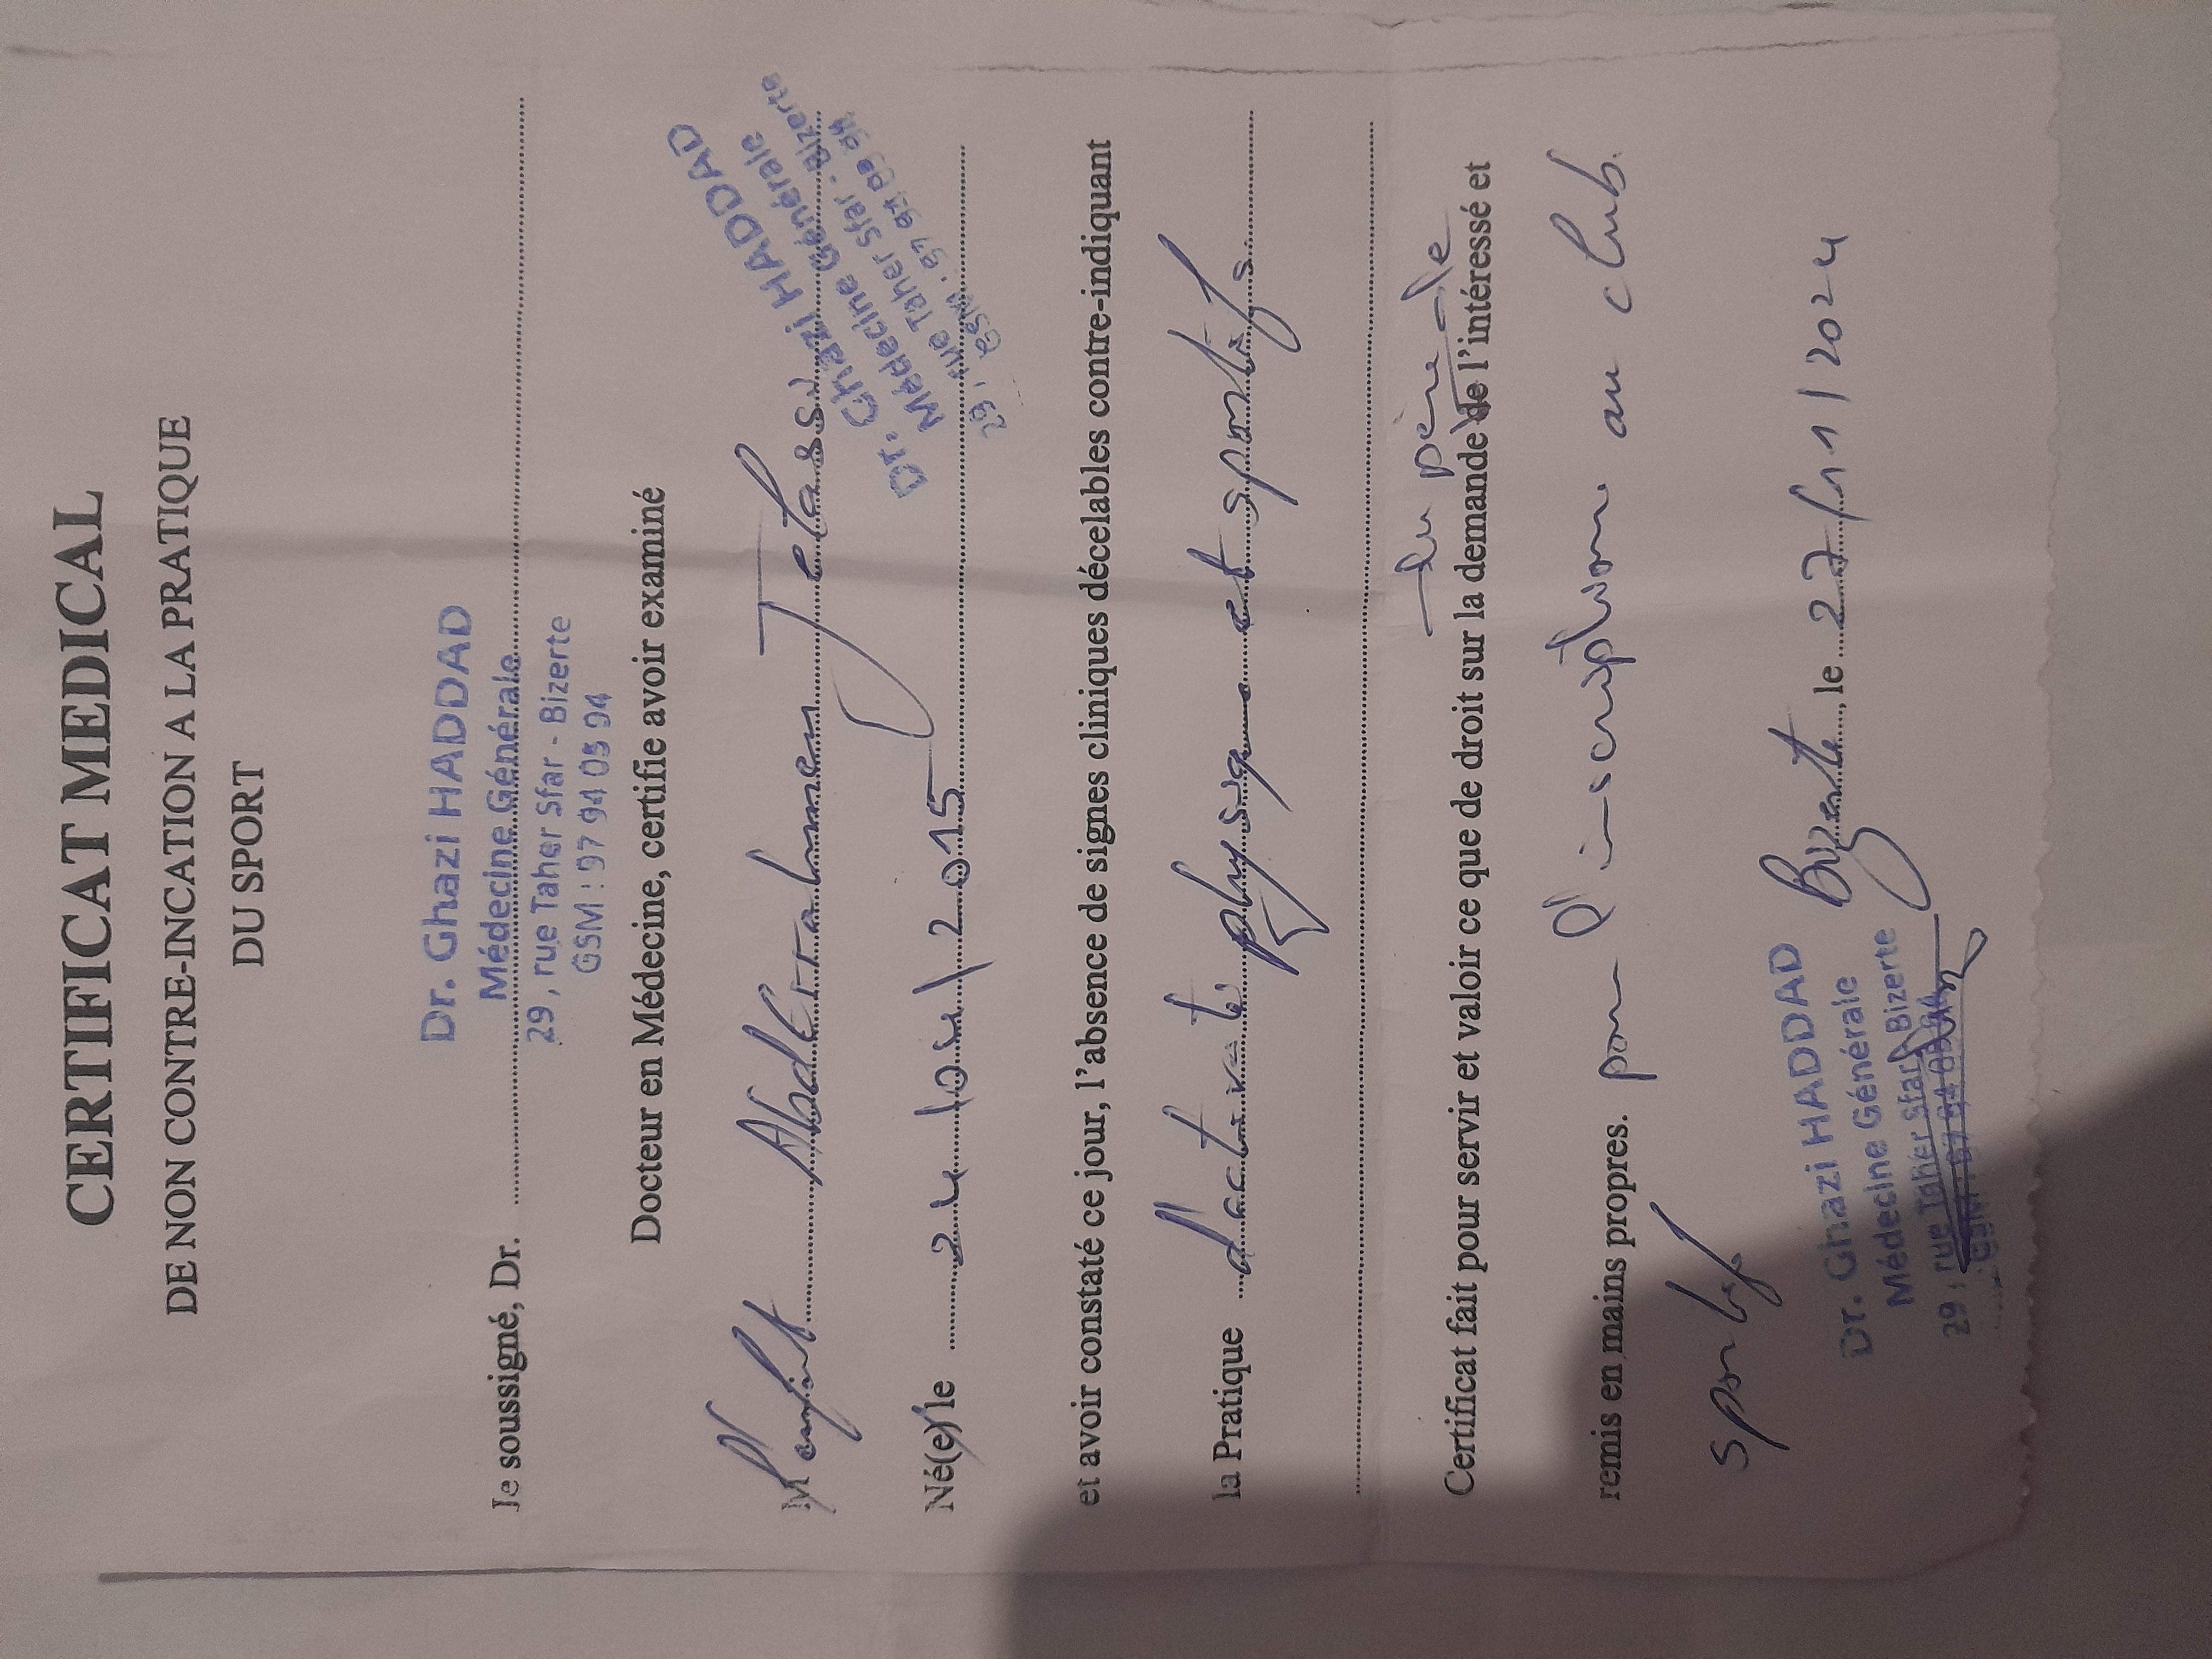 CERTIFICAT MEDICAL
DE NON CONTRE-INCATION A LA PRATIQUE
DU SPORT
Dr. Ghazi HADDAD
Médecine Générale
Je soussigné, Dr.
29, rue Taher Sfar - Bizerte
GSM : 97 94 05 94
Docteur en Médecine, certifie avoir examiné
M l'enfant Abderrahmen Jelassi
Dr. Ghazi HADDAD
Médecine Générale
29, rue Taher Sfar - Bizerte
GSM : 97 94
Né(e) le 24/04/2015
et avoir constaté ce jour, l'absence de signes cliniques décelables contre-indiquant
la Pratique d'activité physique et sportifs
du père de
Certificat fait pour servir et valoir ce que de droit sur la demande de l'intéressé et
remis en mains propres. pour l'inscription au club
sportif
Bizerte, le 27/11/2024
Dr. Ghazi HADDAD
Médecine Générale
29, rue Taher Sfar - Bizerte
GSM : 97 94